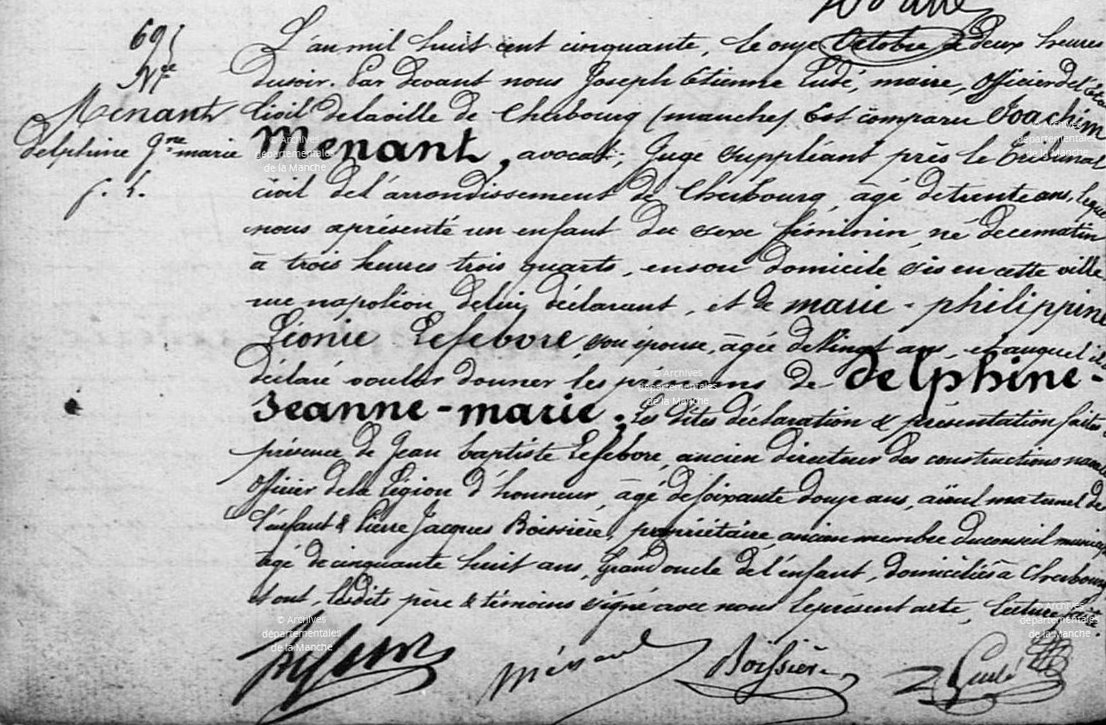 695
Nce
Menant
delphine Jne marie
f. L.
L'an mil huit cent cinquante, le onze Octobre à deux heures
du soir. Par devant nous Joseph Etienne Ludé, maire, officier de l'état
Civil de la ville de Cherbourg (manche) Est comparu Joachim
Menant, avocat, Juge Suppléant près le tribunal
civil de l'arrondissement de Cherbourg, âgé de trente ans, lequel
nous a présenté un enfant du sexe féminin, né de ce matin
à trois heures trois quarts, en son domicile sis en cette ville
rue napoléon, de lui, déclarant, et de marie-philippine
Léonie Lefebvre, son épouse, âgée de vingt ans, et auquel il a
déclaré vouloir donner les prénoms de delphine-
Jeanne-marie. Les dites déclaration & présentation faites
présence de Jean baptiste Lefebvre, ancien directeur des constructions navales
officier de la Légion d'honneur, âgé de soixante douze ans, aïeul maternel de
l'enfant & Pierre Jacques Boissière, propriétaire, ancien membre du conseil municipal
âgé de cinquante huit ans, grand oncle de l'enfant, domiciliés à Cherbourg
& ont, lesdits père & témoins signé avec nous le présent acte, lecture faite.
Ménant
Boissière
Ludé
© Archives
départementales
de la Manche
© Archives
départementales
de la Manche
© Archives
départementales
de la Manche
© Archives
départementales
de la Manche
© Archives
départementales
de la Manche